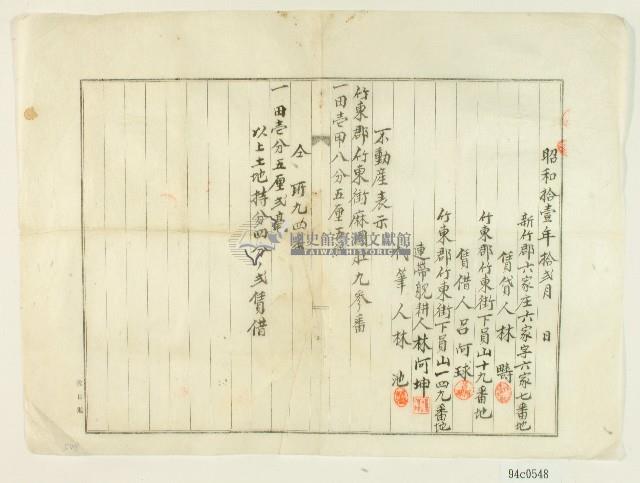 昭和拾壹年拾弍月　日
新竹郡六家庄六家字六家七番地
賃貸人林　疇
竹東郡竹東街下員山十九番地
賃借人呂阿球
竹東郡竹東街下員山一四九番地
連帶貺耕人林阿坤
代筆人林　池
不動産表示
竹東郡竹東街麻園肚九参番
一田壱甲八分五厘五
仝　所九四番
一田壱分五厘弍
以上土地持分四分弍賃借
國史館臺灣文獻館
TAIWAN HISTORICA
94c0548